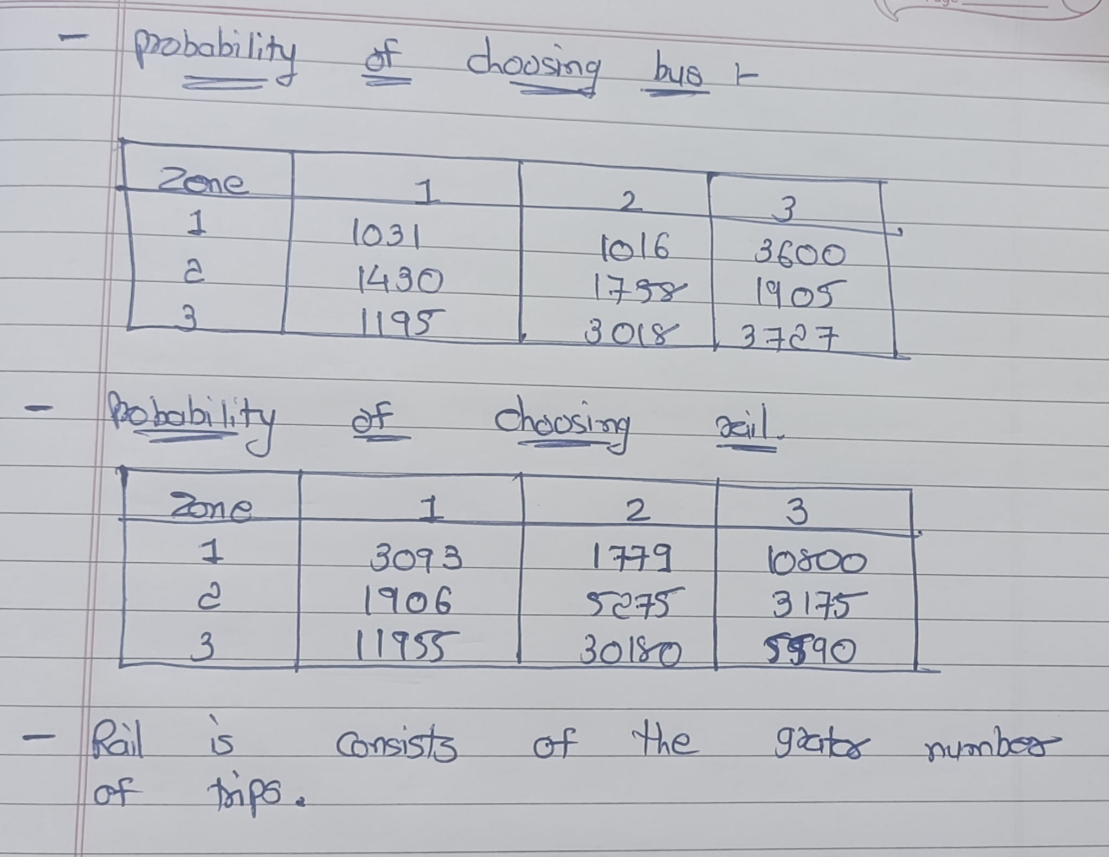 - probability of choosing bus :-
Zone 1 2 3
1 1031 1016 3600
2 1430 1758 1905
3 1195 3018 3727
- Probability of choosing rail.
Zone 1 2 3
1 3093 1779 10800
2 1906 5275 3175
3 11955 30180 5590
- Rail is consists of the grater number
of trips.